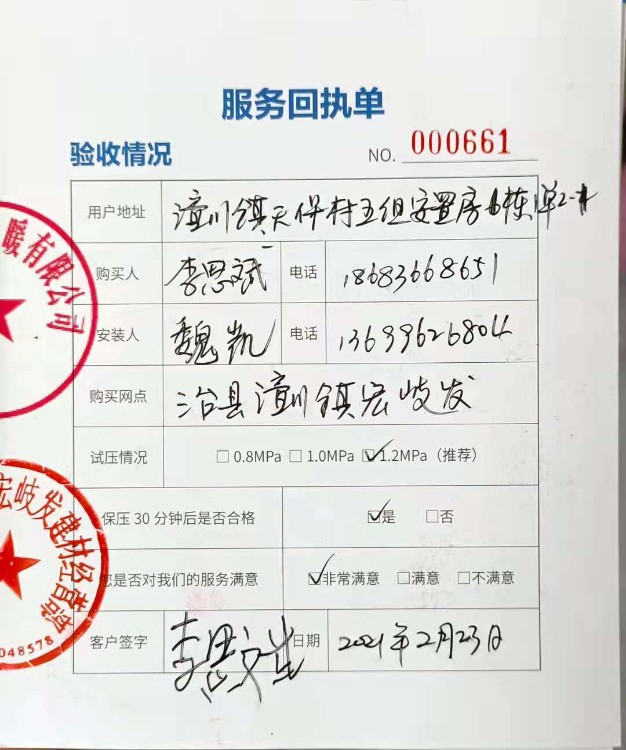 服务回执单
验收情况 NO. 000661
用户地址 潼川镇天保村五组安置房 栋 单2-
购买人 李思斌 电话 18683668651
安装人 魏凯 电话 13699626804
购买网点 三台县潼川镇宏岐发
试压情况 □0.8MPa □1.0MPa ☑1.2MPa（推荐）
保压30分钟后是否合格 ☑是 □否
您是否对我们的服务满意 ☑非常满意 □满意 □不满意
客户签字 李思 日期 2021年2月23日
暖有限公司
宏岐发建材经营部
048578